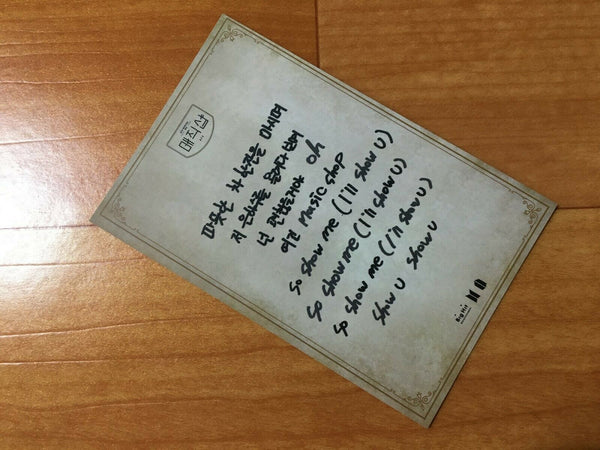 따뜻한 차 한잔을 마시며
저 은하수를 올려다보며
넌 괜찮을거야 oh
여긴 Magic Shop
So show me (I'll show U)
So show me (I'll show U)
So show me (I'll show U)
Show U Show U
BigHit